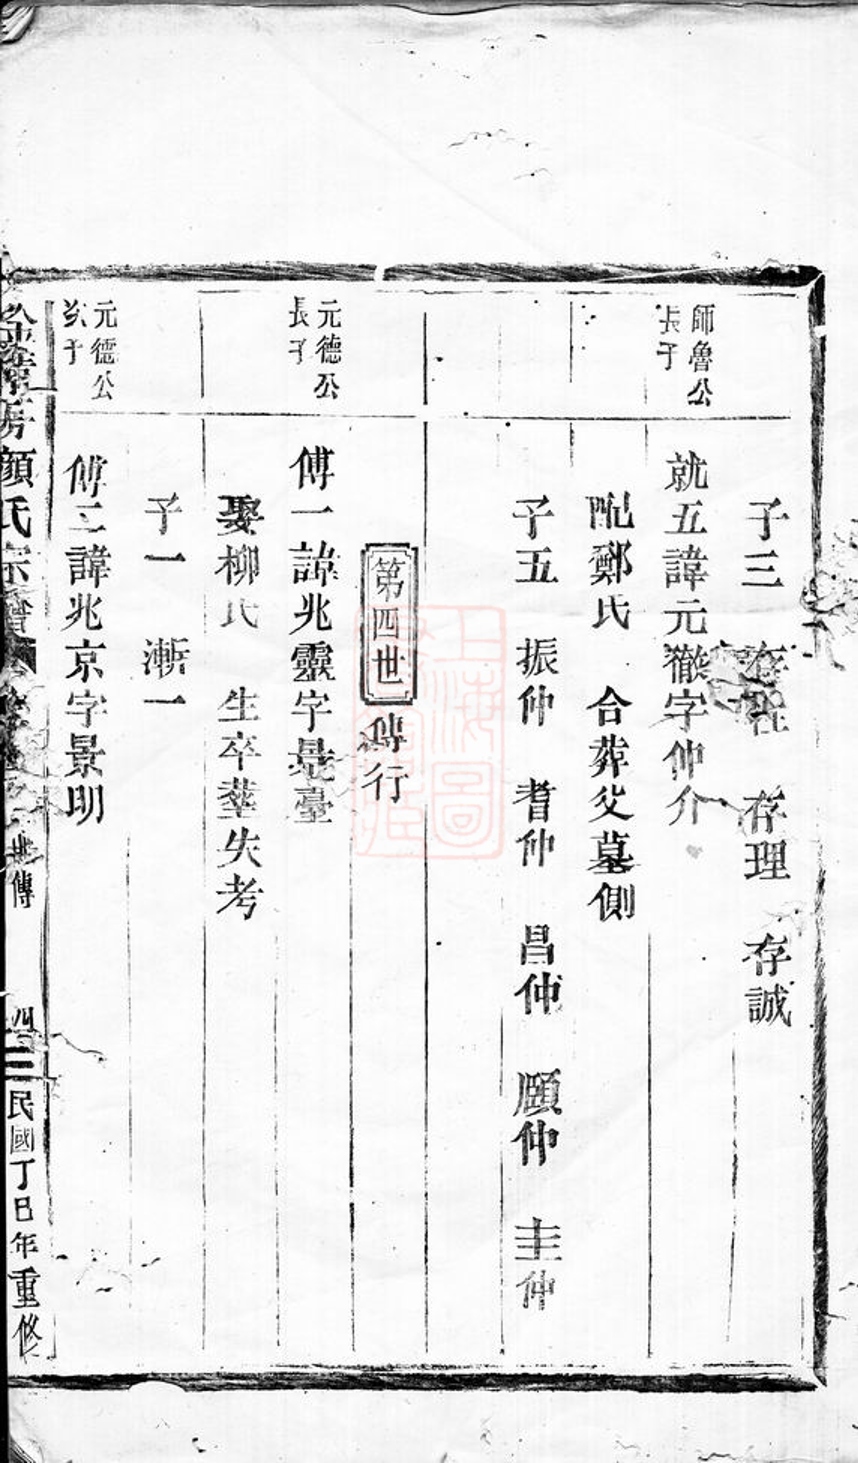 子三 存 存理 存誠
師魯公
長子
就五諱元徹字仲介
配鄭氏 合葬父墓側
子五 振仲 耆仲 昌仲 頤仲 圭仲
第四世 傅行
元德公
長子
傅一諱兆靈字景臺
娶柳氏 生卒塟失考
子一 漸一
元德公
次子
傅二諱兆京字景明
顏氏宗譜
世傳
四
民國丁巳年重修